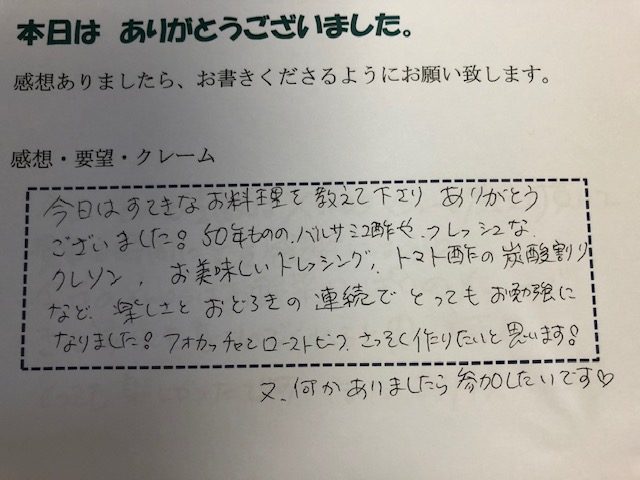 本日は ありがとうございました。
感想ありましたら、お書きくださるようにお願い致します。
感想・要望・クレーム
今日はすてきなお料理を教えて下さり ありがとう
ございました!50年ものの、バルサミコ酢や、フレッシュな
クレソン、お美味しいドレッシング、トマト酢の炭酸割り
など、楽しさとおどろきの連続でとってもお勉強に
なりました!フォカッチャとローストビーフ、さっそく作りたいと思います!
又、何かありましたら参加したいです♡